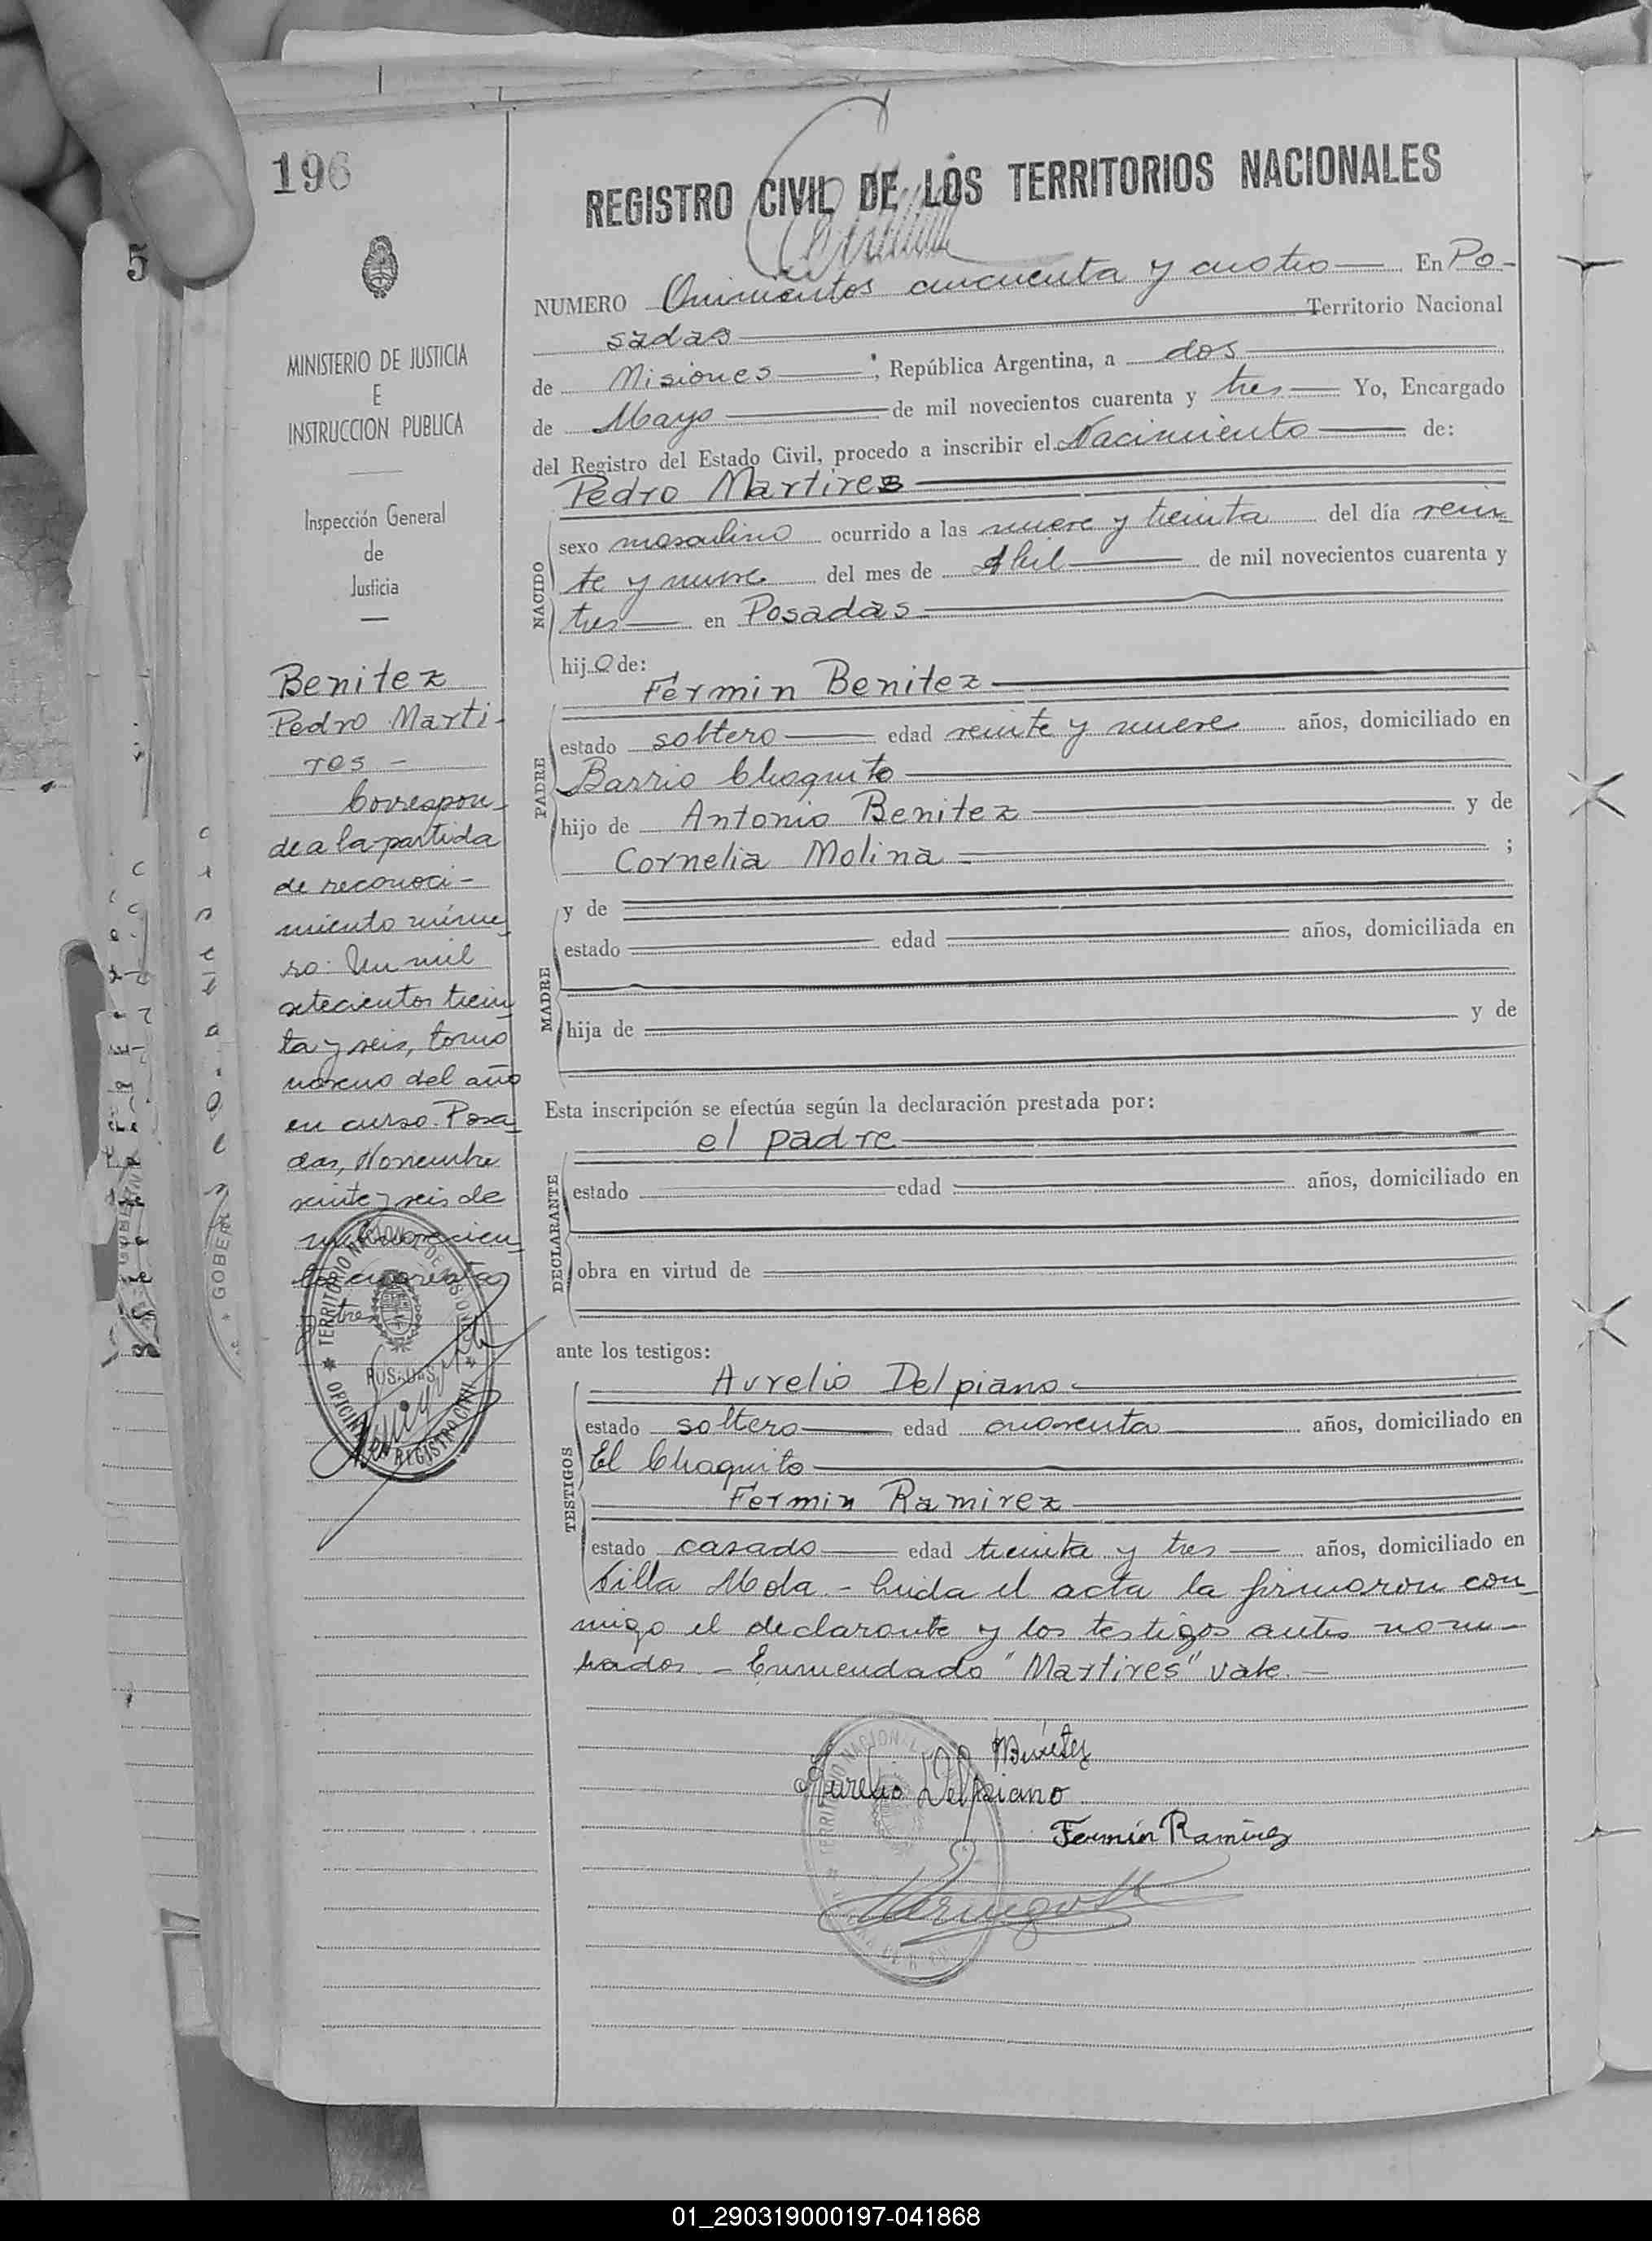 196
REGISTRO CIVIL DE LOS TERRITORIOS NACIONALES
NUMERO Quinientos cincuenta y cuatro En Po-
sadas Territorio Nacional
de Misiones ; República Argentina, a dos
de Mayo de mil novecientos cuarenta y tres Yo, Encargado
del Registro del Estado Civil, procedo a inscribir el Nacimiento de:
Pedro Martires
NACIDO
sexo masculino ocurrido a las nueve y treinta del día vein
te y nueve del mes de Abril de mil novecientos cuarenta y
tres en Posadas
hijo de:
PADRE
Fermin Benitez
estado soltero edad veinte y nueve años, domiciliado en
Barrio Chaquito
hijo de Antonio Benitez y de
Cornelia Molina ;
MADRE
y de
estado edad años, domiciliada en
hija de y de
Esta inscripción se efectúa según la declaración prestada por:
el padre
DECLARANTE
estado edad años, domiciliado en
obra en virtud de
ante los testigos:
TESTIGOS
Aurelio Delpiano
estado soltero edad cuarenta años, domiciliado en
El Chaquito
Fermin Ramirez
estado casado edad treinta y tres años, domiciliado en
Villa Mola.- Leida el acta la firmaron con
migo el declarante y los testigos antes nom-
brados.- Enmendado "Martires" vale.-
Aurelio Delpiano
Fermín Ramirez
MINISTERIO DE JUSTICIA
E
INSTRUCCION PUBLICA
Inspección General
de
Justicia
Benitez
Pedro Marti-
res -
Correspon-
de a la partida
de reconoci-
miento núme
ro: Un mil
setecientos trein
ta y seis, tomo
noveno del año
en curso. Posa-
das, Noviembre
veinte y seis de
mil novecien
tos cuarenta
y tres
TERRITORIO NACIONAL DE MISIONES
POSADAS
OFICINA DE REGISTRO CIVIL
5
01_290319000197-041868